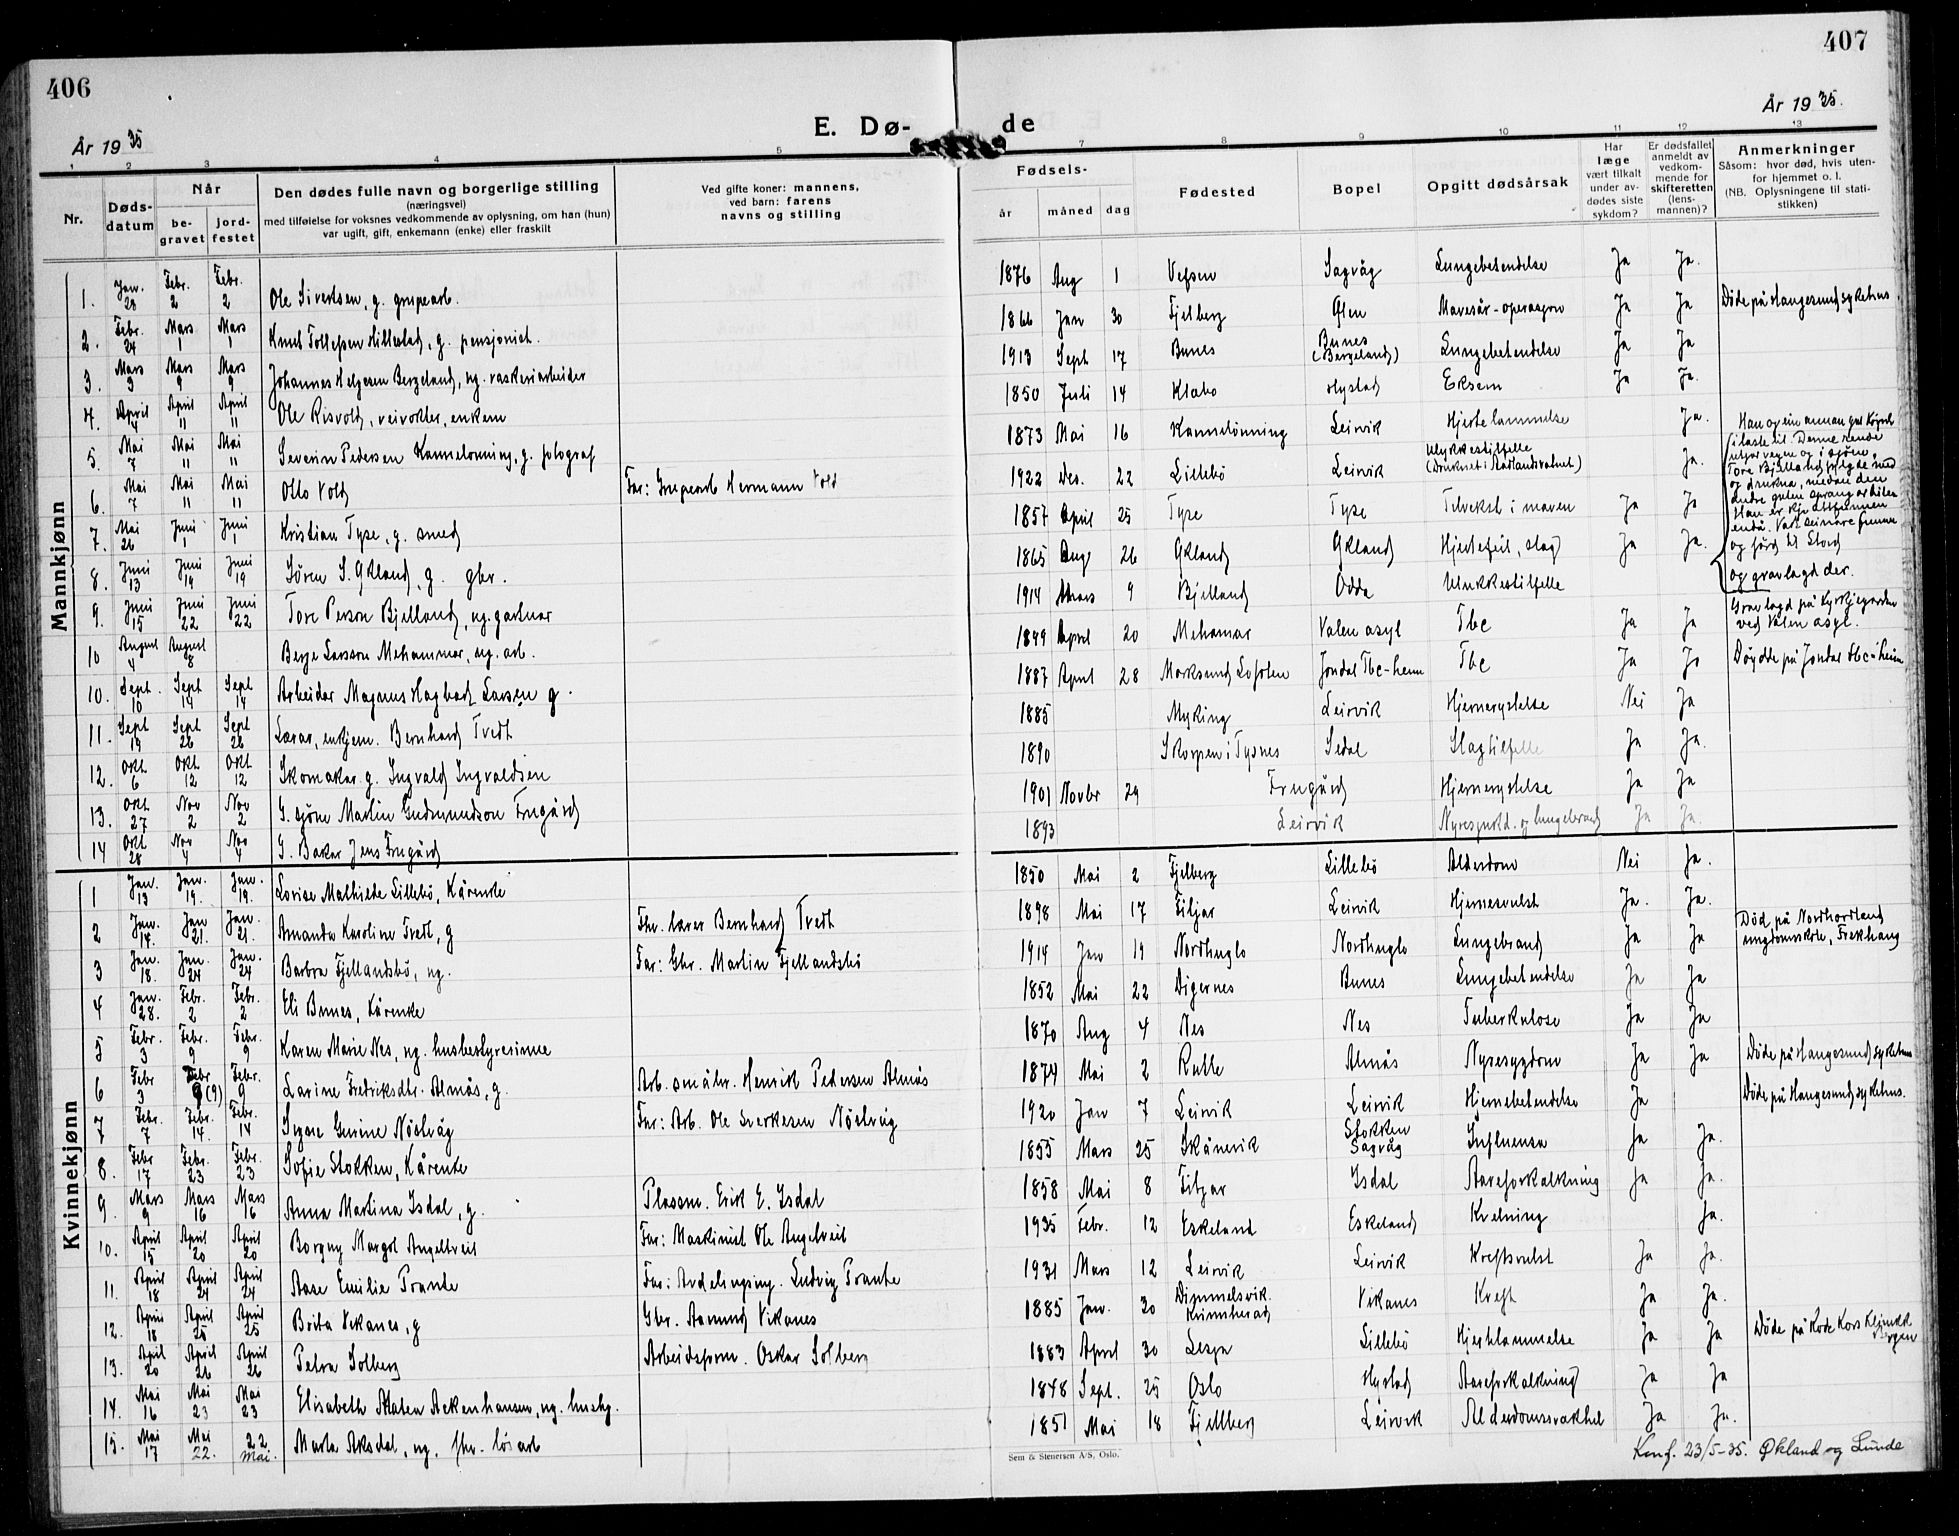 406
407
År 1935
År 1935.
E. Dø-
de
1 2 3 4 5 7 8 9 10 11 12 13
Nr.
Døds-
datum
Når
be-
gravet
jord-
festet
Den dødes fulle navn og borgerlige stilling
(næringsvei)
med tilføielse for voksnes vedkommende av oplysning, om han (hun)
var ugift, gift, enkemann (enke) eller fraskilt
Ved gifte koner: mannens,
ved barn: farens
navns og stilling
Fødsels-
år måned dag
Fødested
Bopel
Opgitt dødsårsak
Har
læge
vært tilkalt
under av-
dødes siste
sykdom?
Er dødsfallet
anmeldt av
vedkom-
mende for
skifteretten
(lens-
mannen)?
Anmerkninger
Såsom: hvor død, hvis uten-
for hjemmet o. l.
(NB. Oplysningene til stati-
stikken)
Mannkjønn
1. Jan. 28 Febr. 2 Febr. 2 Ole Sivertsen, g. grupearb. 1876 Aug 1 Vefsen Sagvåg Lungebetendelse Ja Ja.
2. Febr. 24 Mars 1 Mars 1 Knut Tollefsen Hillestad, g. pensjonist. 1866 Jan 30 Fjelberg Ølen Mavesår-operasjon Ja Ja Døde på Haugesund sykehus.
3. Mars 3 Mars 9 Mars 9 Johannes Helgesen Bergeland, ug. vaskeriarbeider 1913 Sept 17 Bunes Bunes (Bergeland) Lungebetendelse Ja Ja
4. April 4 April 11 April 11 Ole Risvold, veivokter, enkem 1850 Juli 14 Klabo Hystad Eksem Ja Ja.
5. Mai 7 Mai 11 Mai 11 Severin Pedersen Kannelønning, g. fotograf 1873 Mai 16 Kannelønning Leirvik Hjertelammelse Ja.
6. Mai 7 Mai 11 Mai 11 Otto Vold Far: Grupearb Hermann Vold 1922 Des. 22 Lillebö Leirvik Ulykkestilfelle (Druknet i Ådlandsvatnet) Ja.
7. Mai 26 Juni 1 Juni 1 Kristian Tyse, g. smed 1857 April 25 Tyse Tyse Tilvekst i maven Ja Ja
8. Juni 13 Juni 19 Juni 19 Sören S. Økland, g. gbr. 1865 Aug 26 Økland Økland Hjertefeil, slag Ja Ja.
9. Juni 15 Juni 22 Juni 22 Tore Person Bjelland, ug. gartnar 1914 Mars 9 Bjelland Odda Ulukkestilfelle
Han og ein annan gut köyrde
i laste bil. Denne rende
utfor vegen og i sjöen.
Tore Bjelland fylgde med
og drukna, medan den
andre guten sprang or bilen
Han er kje attfunnen
endå. Vart seinare funnen
og förd til Stord
og gravlagd der.
10 August 4 August 8 Berje Larsson Mehammar, ug. arb. 1849 April 20 Mehamar Valen asyl Tbc Ja Ja Gravlagd på kyrkjegarden ved Valen asyl.
10. Sept. 10 Sept 14 Sept 14 Arbeidar Magnus Hagbard Larsen g. 1887 April 28 Jondal Tbc-heim Tbc Ja Ja Döydde på Jondal tbc-heim
11. Sept 19 Sept 26 Sept 26 Lærar, enkjem. Bernhard Tvedt 1885 Myking Leirvik Hjernerystelse Nei Ja
12. Okt 6 Okt 12 Okt 12 Skomakar g. Ingvald Ingvaldsen 1890 Skorpen i Tysnes Sedal Slagtilfelle Ja Ja.
13. Okt 27 Nov 2 Nov 2 G. sjöm Martin Gudmundson Frugård 1901 Novbr 29 Frugård Hjernerystelse Ja Ja
14 Okt 28 Nov 4 Nov 4 G. Bakar Jens Frugård 1893 Leirvik og lungebrand Ja Ja.
Kvinnekjønn
1 Jan. 13 Jan. 19. Jan. 19. Lovise Mathilde Lillebö, Kårenke 1850 Mai 2 Fjelberg Lillebö Alderdom Nei Ja.
2 Jan. 14. Jan 21. Jan. 21. Amanda Karoline Tvedt, g Fhv. lærer Bernhard Tvedt 1898 Mai 17 Fitjar Leirvik Hjernesvulst Ja. Ja.
3 Jan. 18. Jan. 24 Jan. 24 Barbra Fjellandsbö, ug. Far: Gbr. Martin Fjellandsbö 1914 Jan 19 Nordhuglo Nordhuglo Lungebrand Ja Ja Död på Nordhordland ungdomsskole, Frekhaug
4 Jan. 28. Febr. 2 Febr. 2 Eli Bunes, Kårenke 1852 Mai 22 Digernes Bunes Lungebetendelse Ja Ja
5 Febr. 3 Febr. 9 Febr. 9 Karen Marie Nes, ug. husbestyrerinne 1870 Aug 4 Nes Nes Tuberkulose Ja Ja
6 Febr 3 Febr. 9 (9) Febr. 9 Larine Fredriksdtr. Almås, g. Arb. småbr. Henrik Pedersen Almås 1874 Mai 2 Rulle Almås Nyresygdom Ja Ja Döde på Haugesund sykehus
7 Febr. 7 Febr. 14. Febr. 14 Signe Gurine Nöstvåg Far: Arb. Ole Sverkesen Nöstvåg 1920 Jan 7 Leirvik Leirvik Hjernebetendelse Ja Döde på Haugesund sykehus.
8. Febr 17 Febr. 23 Febr. 23 Sofie Stokken, Kårenke 1855 Mars 25 Skånevik Stokken Sagvåg Influensa Ja Ja.
9. Mars 9 Mars 16 Mars 16 Anna Martina Isdal, g. Plassm. Erik E. Isdal 1858 Mai 8 Fitjar Isdal Aareforkalkning Ja Ja.
10. April 15 April 20 April 20 Borgny Margot Angeltveit Far: Maskinist Ole Angeltveit 1935 Febr. 12 Eskeland Eskeland Kvelning Ja.
11. April 18 April 24 April 24 Aase Emilie Prante Far: Avdelingsing. Ludvig Prante 1931 Mars 12 Leirvik Leirvik Kreftsvulst Ja Ja.
12. April 18 April 25 April 25 Brita Vikanes, g Gbr. Aamund Vikanes 1885 Jan. 30 Dimmelsvik. Kvinnherad Vikanes Kreft Ja Ja.
13. April 20 April 26 April 26 Petra Solberg Arbeidsform. Oskar Solberg 1883 April 30 Lesja Lillebö Hjertelammelse Ja Ja Döde på Röde Kors Klinikk Bergen
14. Mai 16 Mai 23 Mai 23 Elisabeth Maten Ackenhausen, ug. hush. 1848 Sept. 25 Oslo Hystad Aareforkalkning Ja Ja
15. Mai 17 Mai 22. 22 Mai. Marta Aksdal, ug. fhv. lösarb 1851 Mai 18 Fjellberg Leirvik Alderdomssvakhet Ja Ja.
Sem & Stenersen A/S, Oslo.
Konf. 23/5-35. Økland og Lunde